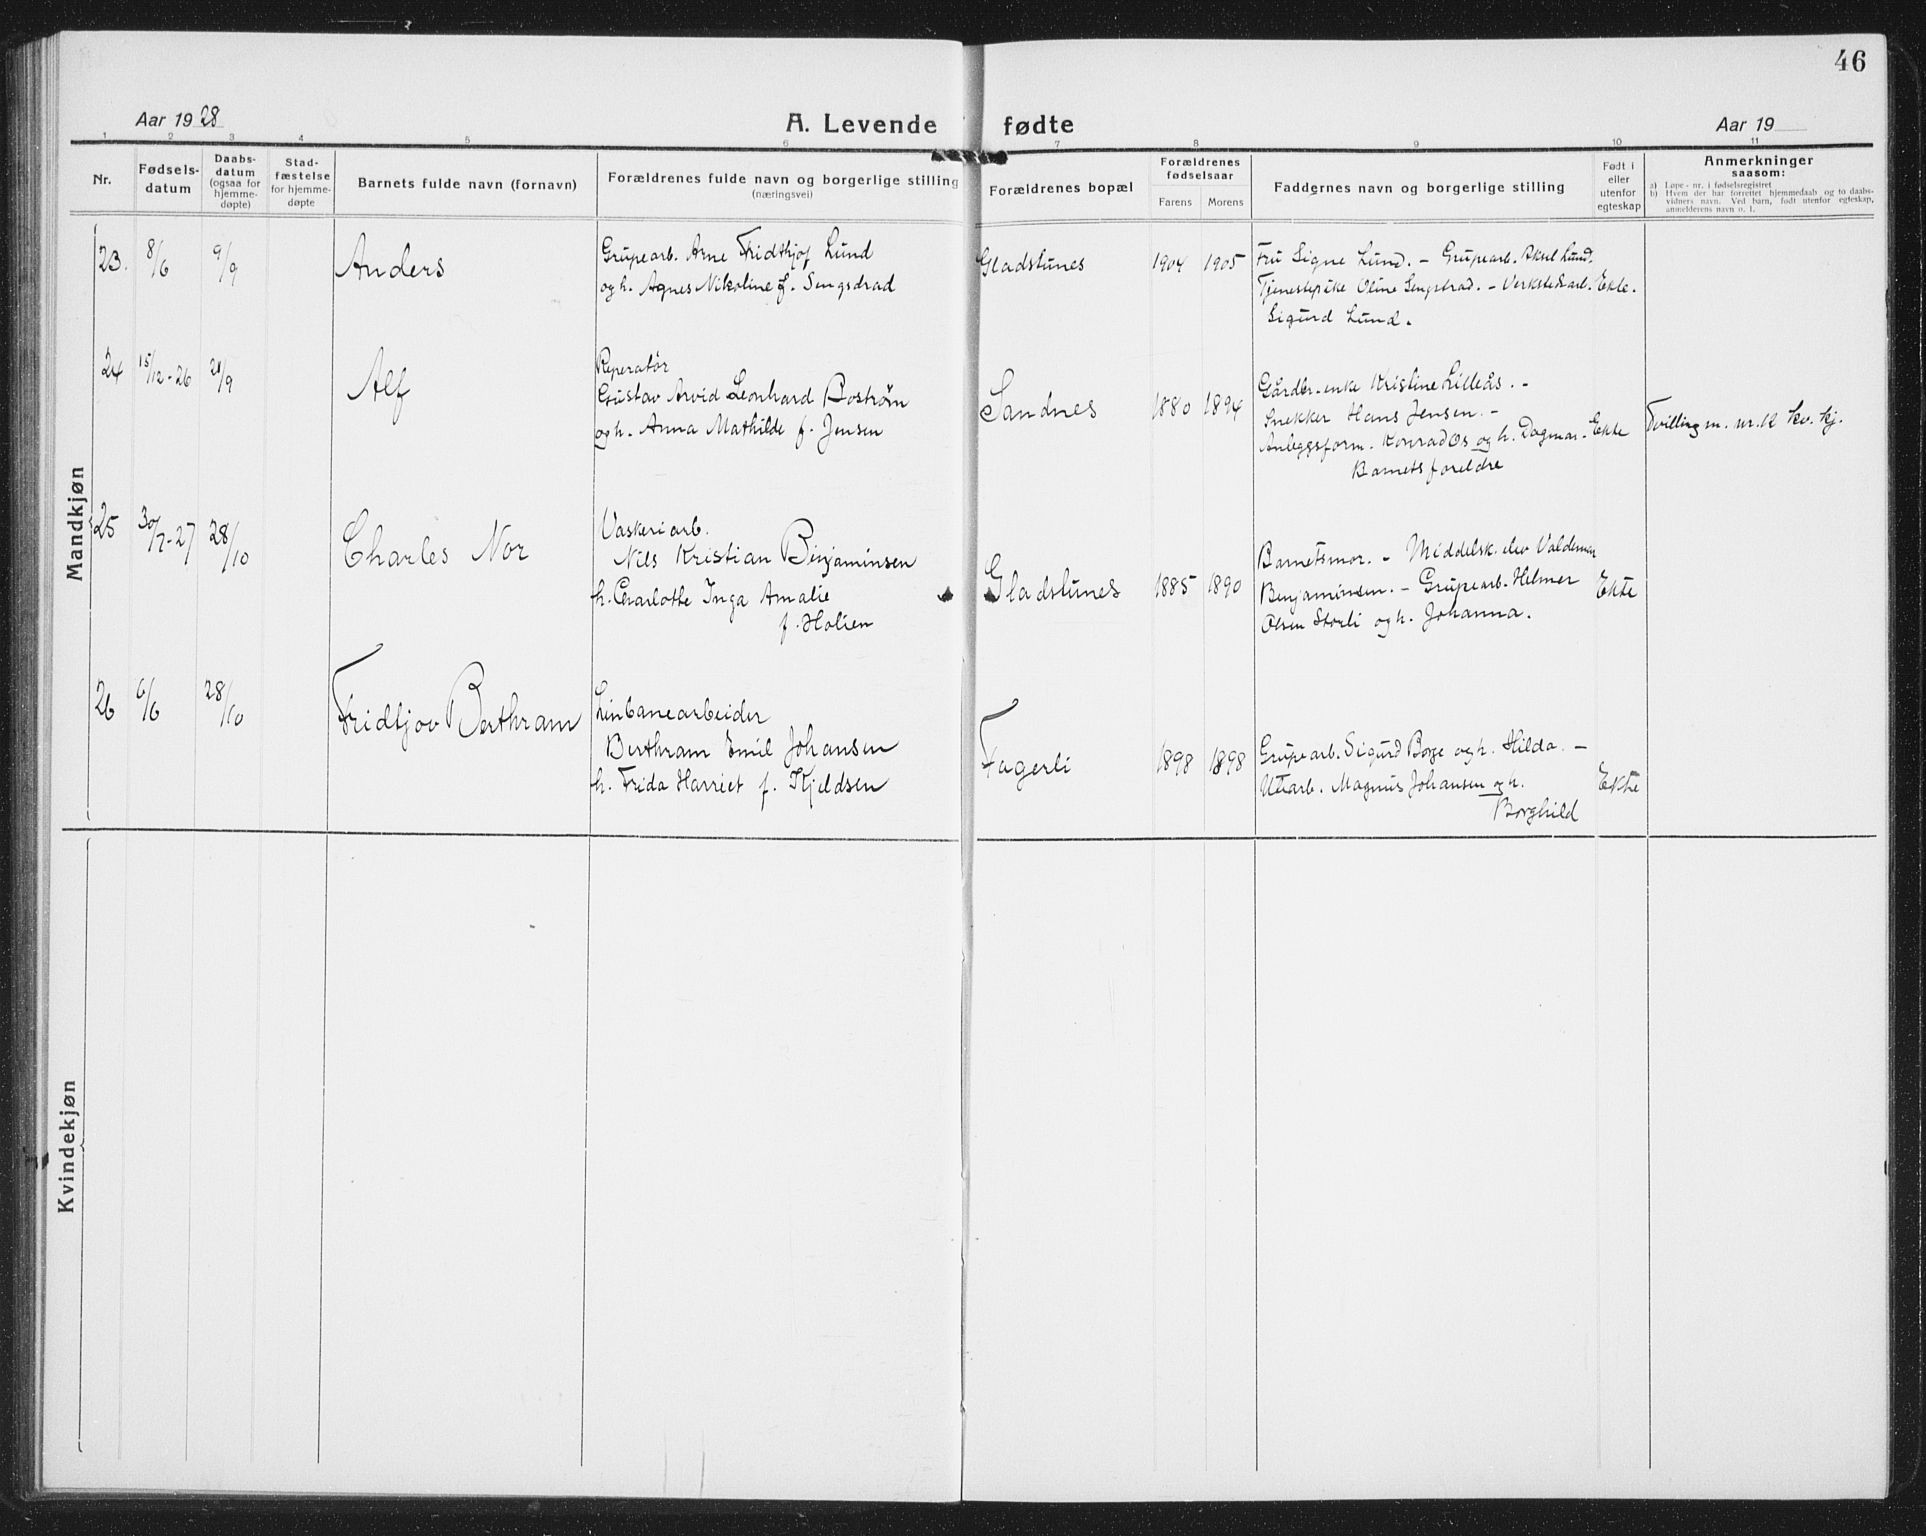 46
Aar 1928
A. Levende fødte
Aar 19
1 2 3 4 5 6 7 8 9 10 11
Nr.
Fødsels-
datum
Daabs-
datum
(ogsaa for
hjemme-
døpte)
Stad-
fæstelse
for hjemme-
døpte
Barnets fulde navn (fornavn)
Forældrenes fulde navn og borgerlige stilling
(næringsvei)
Forældrenes bopæl
Forældrenes
fødselsaar
Farens Morens
Faddernes navn og borgerlige stilling
Født i
eller
utenfor
egteskap
Anmerkninger
saasom:
a) Løpe-nr. i fødselsregistret
b) Hvem der har forrettet hjemmedaab og to daabs-
vidners navn. Ved barn, født utenfor egteskap,
anmelderens navn o. l.
Mandkjøn
23. 8/6 9/9 Anders
Grupearb. Arne Fridthjof Lund
og h. Agnes Nikoline f. Sengsdrad
Gladstunes 1904 1905
Fru Signe Lund. - Grupearb. Aksel Lund.
Tjenestepike Oline Sengstrad. - Verkstedsarb.
Sigurd Lund.
Ekte.
24 15/12-26 21/9 Alf
Reperatør
Gustav Arvid Leonhard Bostrøm
og h. Anna Mathilde f. Jensen
Sandnes 1880 1894
Gårdbr. enke Kristine Lilleås. -
Snekker Hans Jensen. -
Anleggsform. Konrad Os og h. Dagmar. -
Barnets foreldre
Ekte
Tvilling m. nr. 12 kv. kj.
25 30/7-27 28/10 Charles Nor
Vaskeriarb.
Nils Kristian Binjaminsen
h. Charlotte Inga Amalie
f. Holien
Gladstunes 1885 1890
Barnetsmor. - Middelsk. elev Valdemar
Benjaminsen. - Grupearb. Helmer
Olsen Storli og h. Johanna.
Ekte
26 6/6 28/10 Fridtjov Berthram
Linbanearbeider
Berthram Emil Johansen
h. Frida Harriet f. Kjeldsen
Fagerli 1898 1898
Grupearb. Sigurd Borge og h. Hilda. -
Utearb. Magnus Johansen og h.
Borghild
Ekte
Kvindekjøn